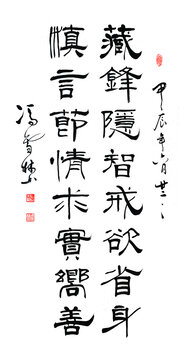 甲辰年六月廿三
藏鋒隱智戒欲省身
慎言節情求實嚮善
馮雪林